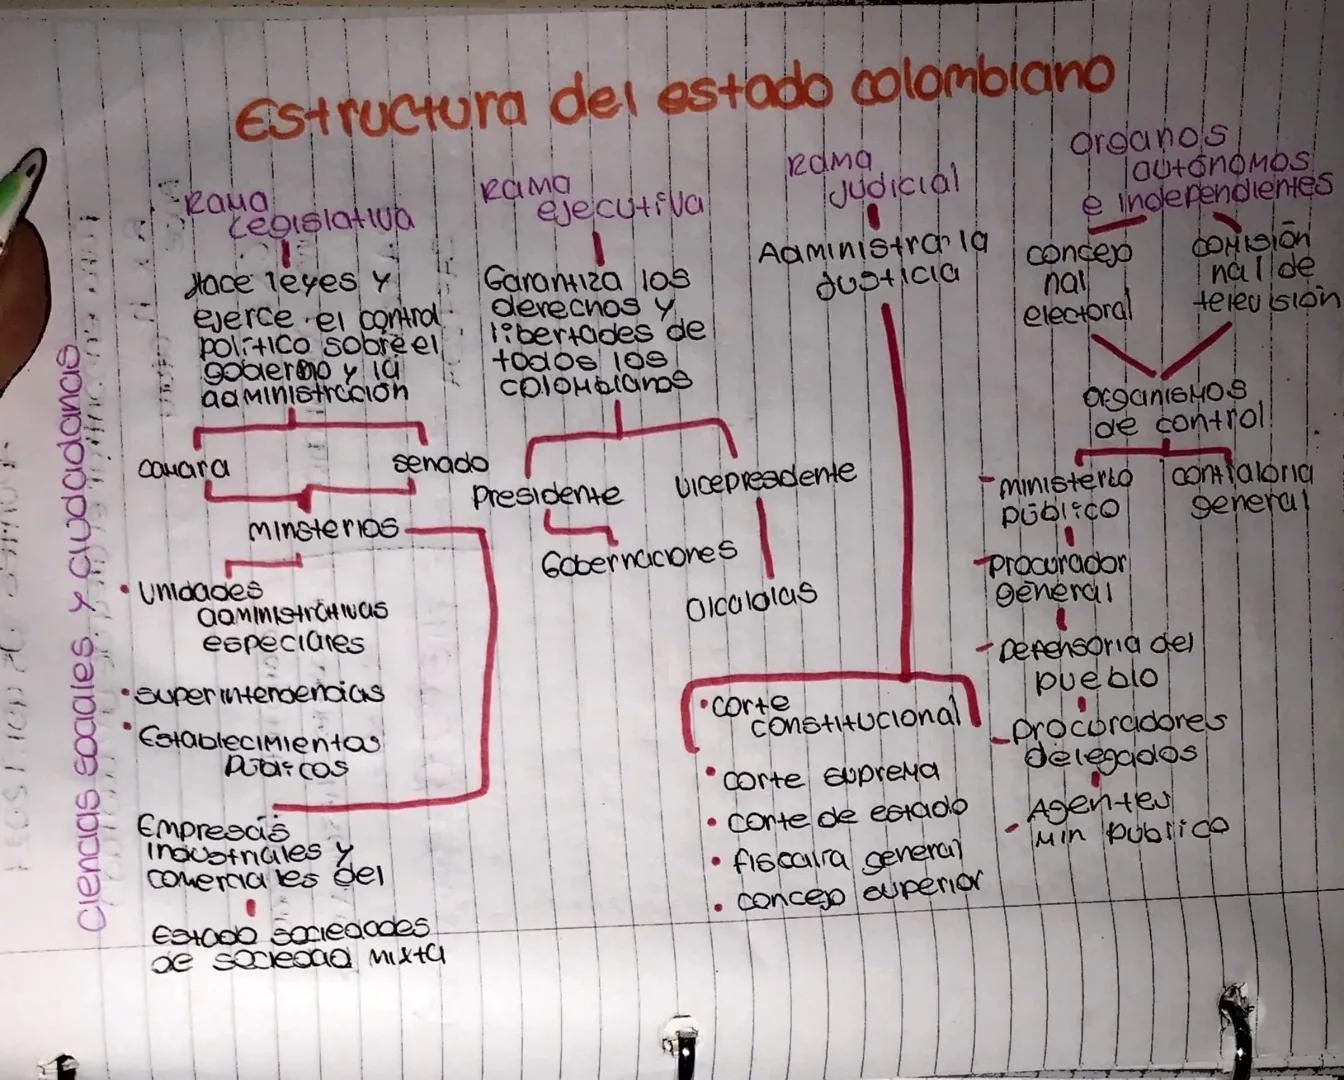 Estructura del estado colombiano
Rama
Legislativa
Hace leyes y
ejerce el control
político sobre el
gobierno y la
administración
camara
senado
Minsterios
• Unidades
administrativas
especiales
• superintendencias
• Establecimientos
públicos
Empresas
industriales y
comerciales del
Estado sociedades
de sociedad mixta
Rama
ejecutiva
Garantiza los
derechos y
libertades de
todos los
colombianos
Presidente
vicepresidente
Gobernaciones
alcaldias
Rama
Judicial
Administrar la
justicia
• corte
constitucional
• corte suprema
• corte de estado
• fiscalia general
• concejo superior
organos
autónomos
e independientes
concejo
nal
electoral
comisión
nal de
television
organismos
de control
- ministerio
público
contraloria
general
- procurador
general
- Defensoria del
pueblo
- procuradores
delegados
- Agentes
Min publico
Ciencias sociales y ciudadanas